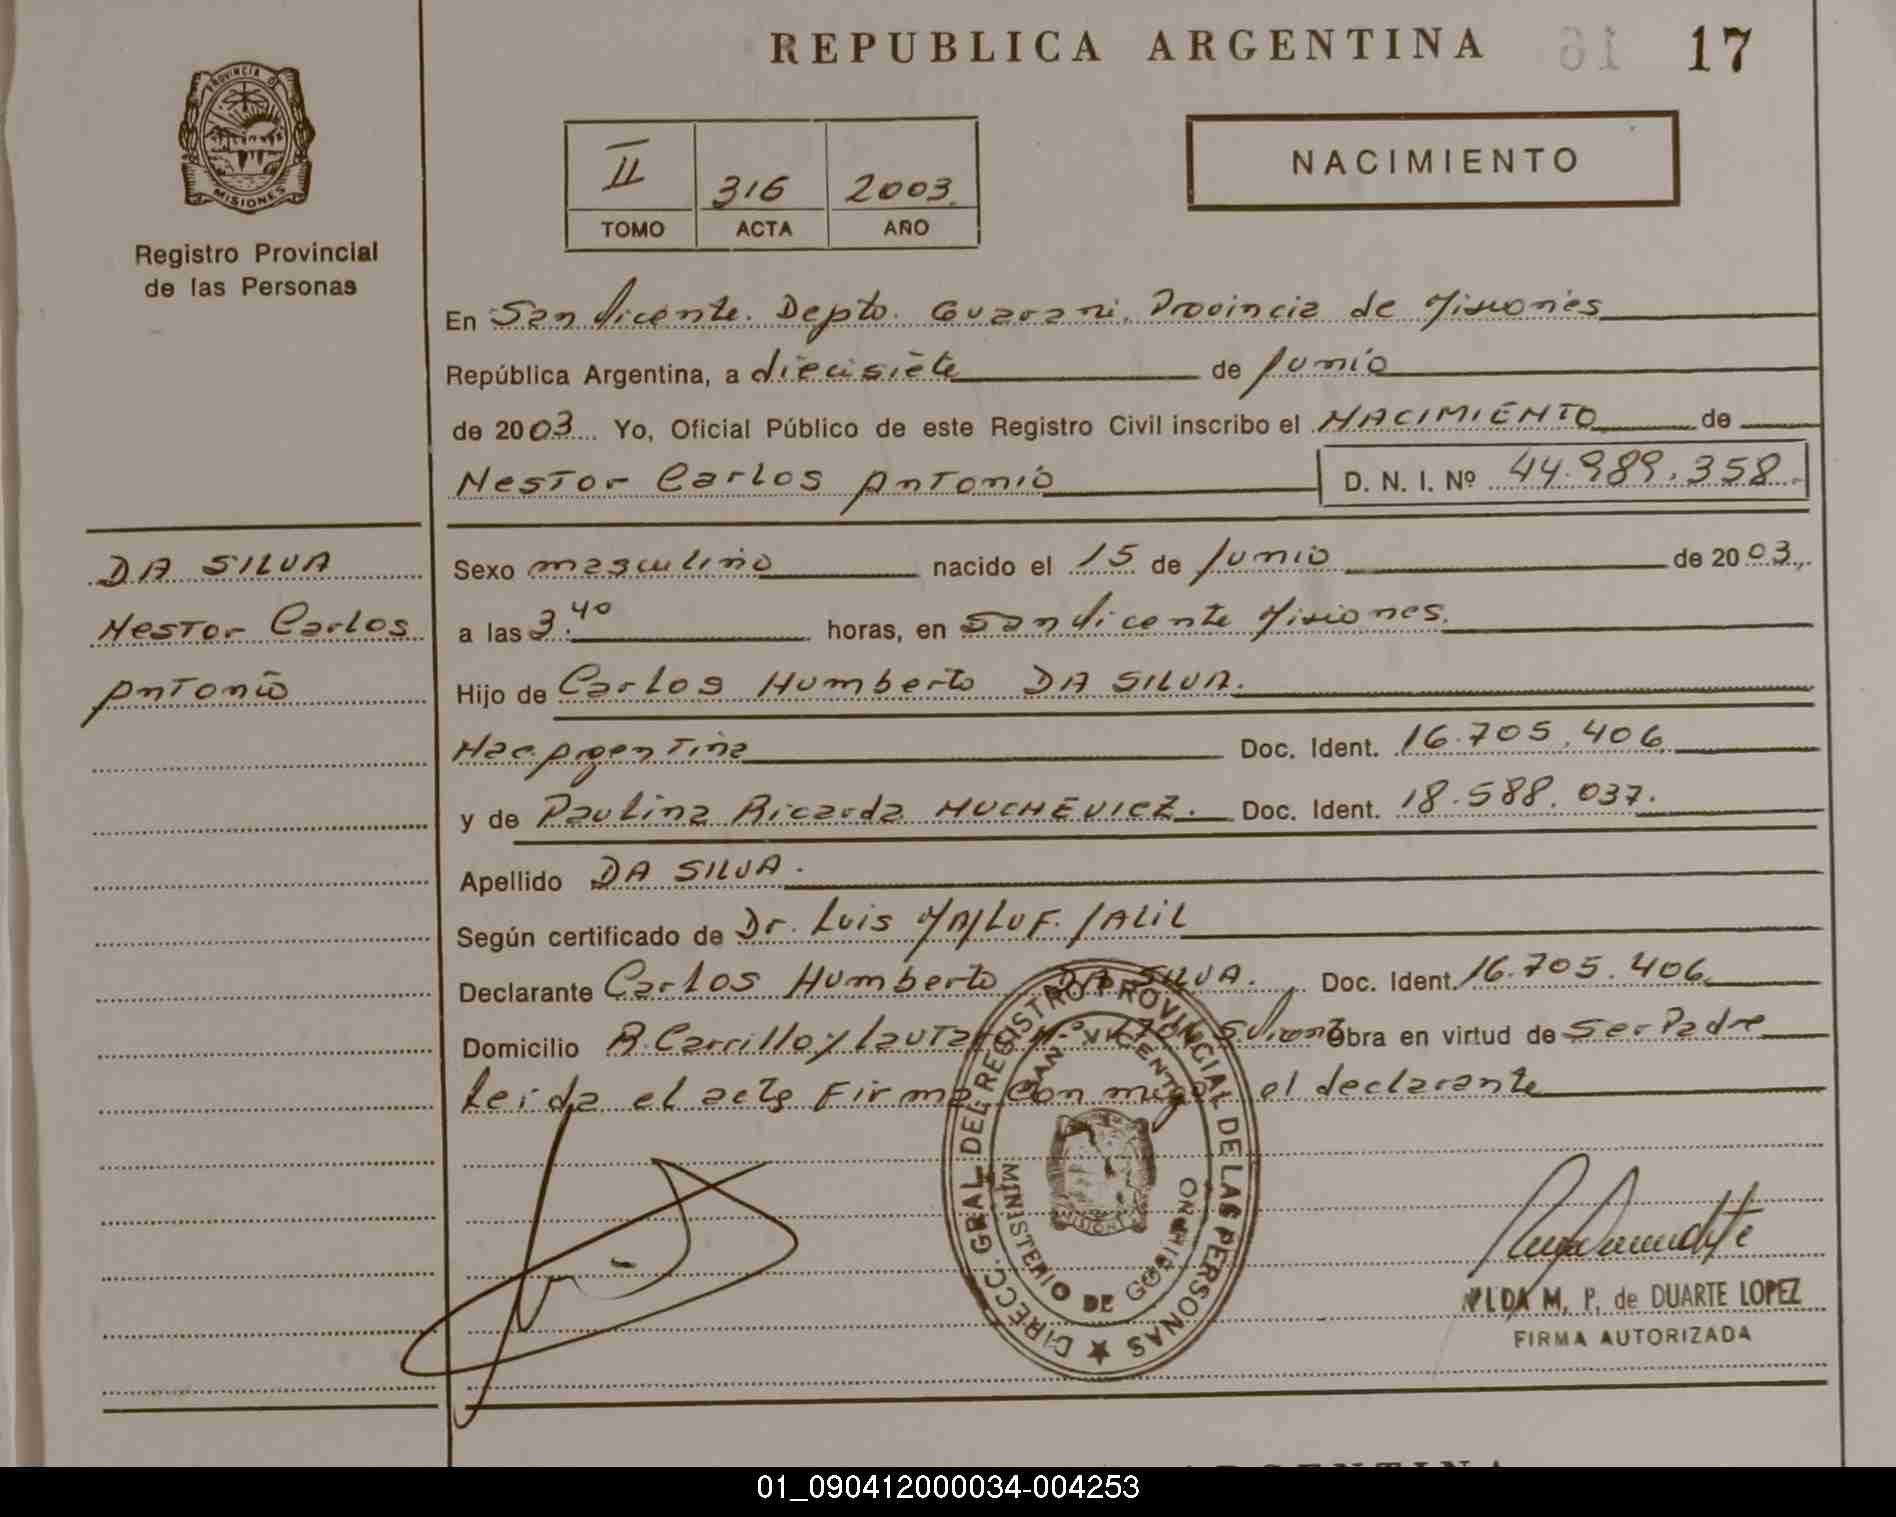 REPUBLICA ARGENTINA 16 17
PROVINCIA DE
MISIONES
Registro Provincial
de las Personas
II 316 2003.
TOMO ACTA AÑO
NACIMIENTO
En San Vicente. Depto. Guarani. Provincia de Misiones
República Argentina, a diecisiete de Junio
de 2003 Yo, Oficial Público de este Registro Civil inscribo el NACIMIENTO de
Nestor Carlos Antonio D. N. I. Nº 44.989.358.
DA SILVA
Nestor Carlos
Antonio
Sexo masculino nacido el 15 de Junio de 2003.
a las 3:40 horas, en San Vicente Misiones.
Hijo de Carlos Humberto DA SILVA.
Nac. Argentina Doc. Ident. 16.705.406
y de Paulina Ricarda MUCHEVICZ. Doc. Ident. 18.588.037.
Apellido DA SILVA.
Según certificado de Dr. Luis MAJLUF. JALIL
Declarante Carlos Humberto DA SILVA. Doc. Ident. 16.705.406
Domicilio R. Carrillo y Lautaro Nº S. Vicente Obra en virtud de Ser Padre
Leida el acta Firma con migo el declarante
DIRECC. GRAL. DEL REGISTRO PROVINCIAL DE LAS PERSONAS
SAN VICENTE
MINISTERIO DE GOBIERNO
M. P. de DUARTE LOPEZ
FIRMA AUTORIZADA
ARGENTINA
01_090412000034-004253